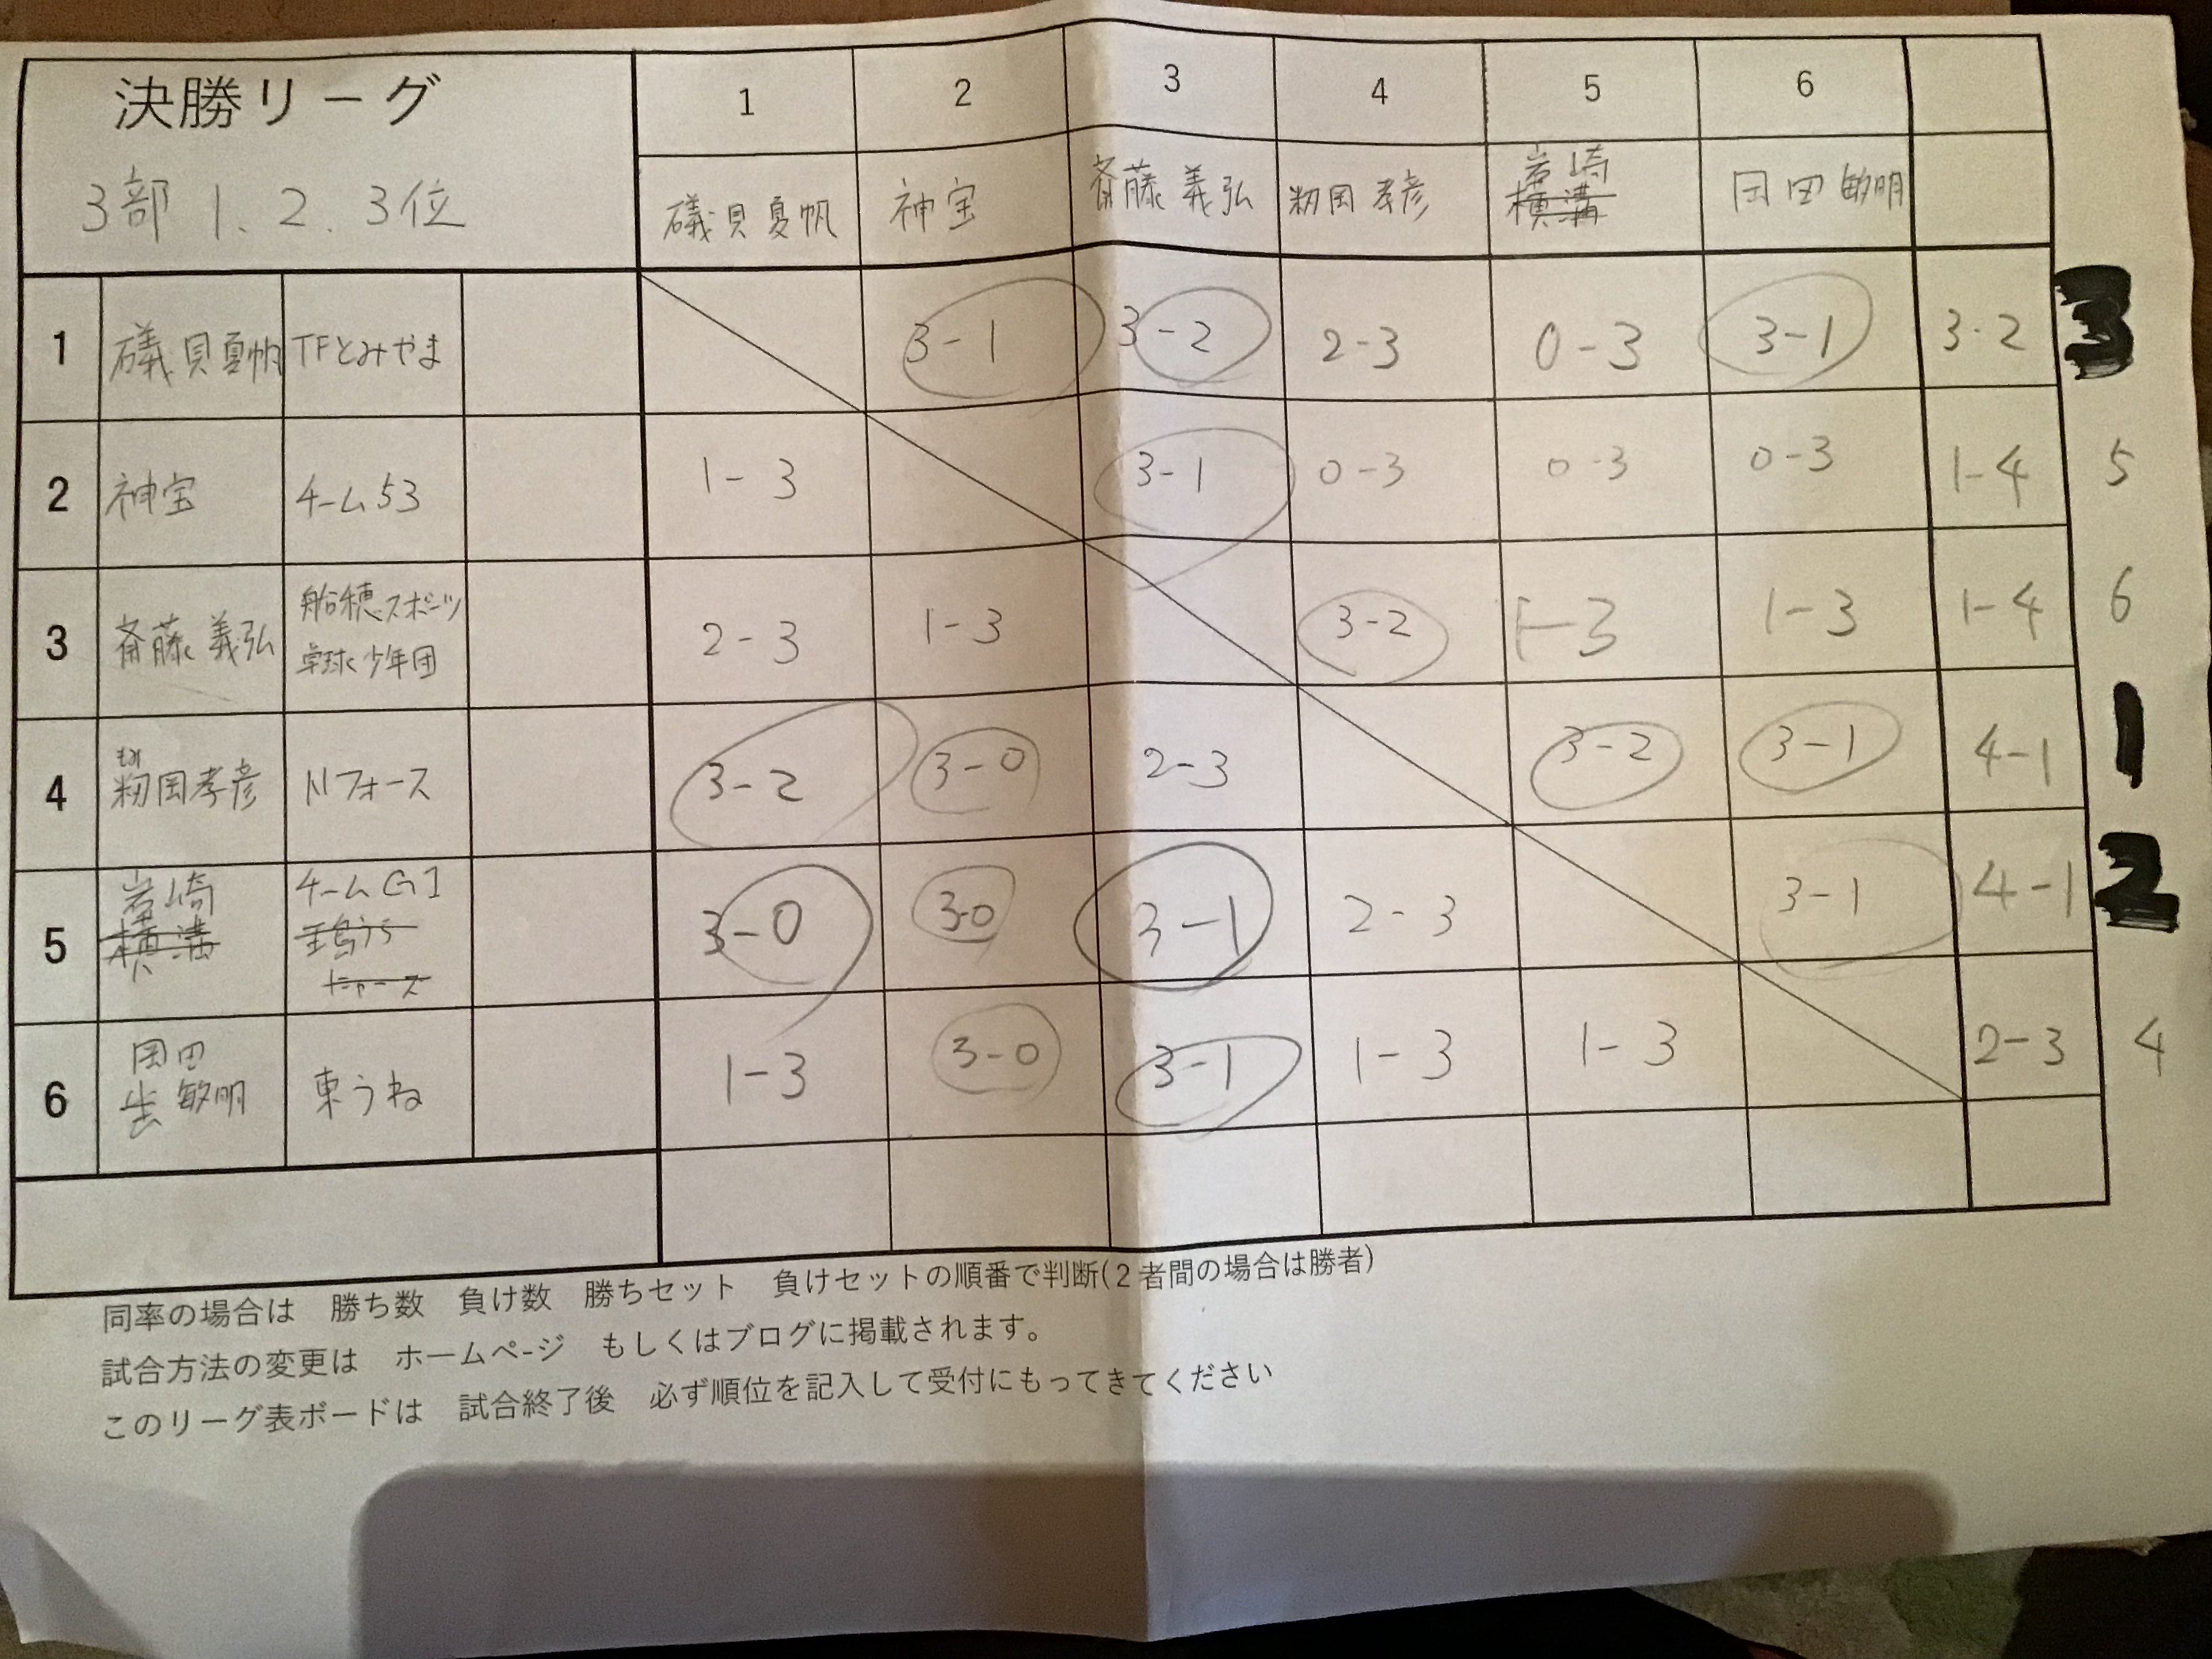 決勝リーグ
3部 1、2、3位
1 2 3 4 5 6
礒貝夏帆 神宝 斎藤義弘 籾岡孝彦 岩崎 横溝 岡田敏明
1 礒貝夏帆 TFとみやま 3-1 3-2 2-3 0-3 3-1 3-2 3
2 神宝 チーム53 1-3 3-1 0-3 0-3 0-3 1-4 5
3 斎藤義弘 船穂スポーツ
卓球少年団 2-3 1-3 3-2 1-3 1-3 1-4 6
もみ
4 籾岡孝彦 Nフォース 3-2 3-0 2-3 3-2 3-1 4-1 1
岩崎 チームG1
5 横溝 3-0 3-0 3-1 2-3 3-1 4-1 2
岡田
6 敏明 東うね 1-3 3-0 3-1 1-3 1-3 2-3 4
同率の場合は 勝ち数 負け数 勝ちセット 負けセットの順番で判断(2者間の場合は勝者)
試合方法の変更は ホームページ もしくはブログに掲載されます。
このリーグ表ボードは 試合終了後 必ず順位を記入して受付にもってきてください